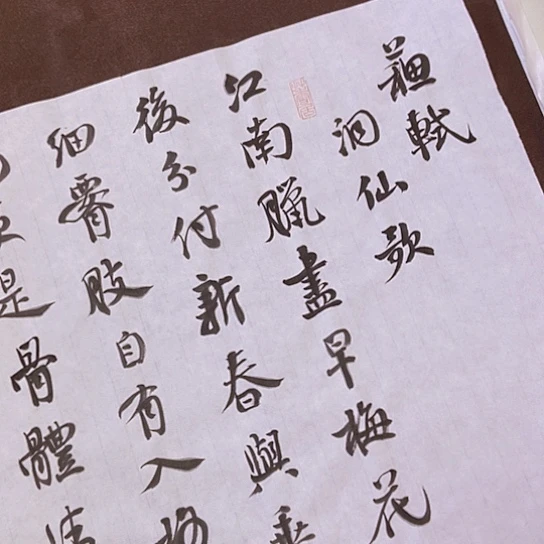 蘇軾
洞仙歌
江南臘盡早梅花
後分付新春與垂
細腰肢自有入格
更是骨體清